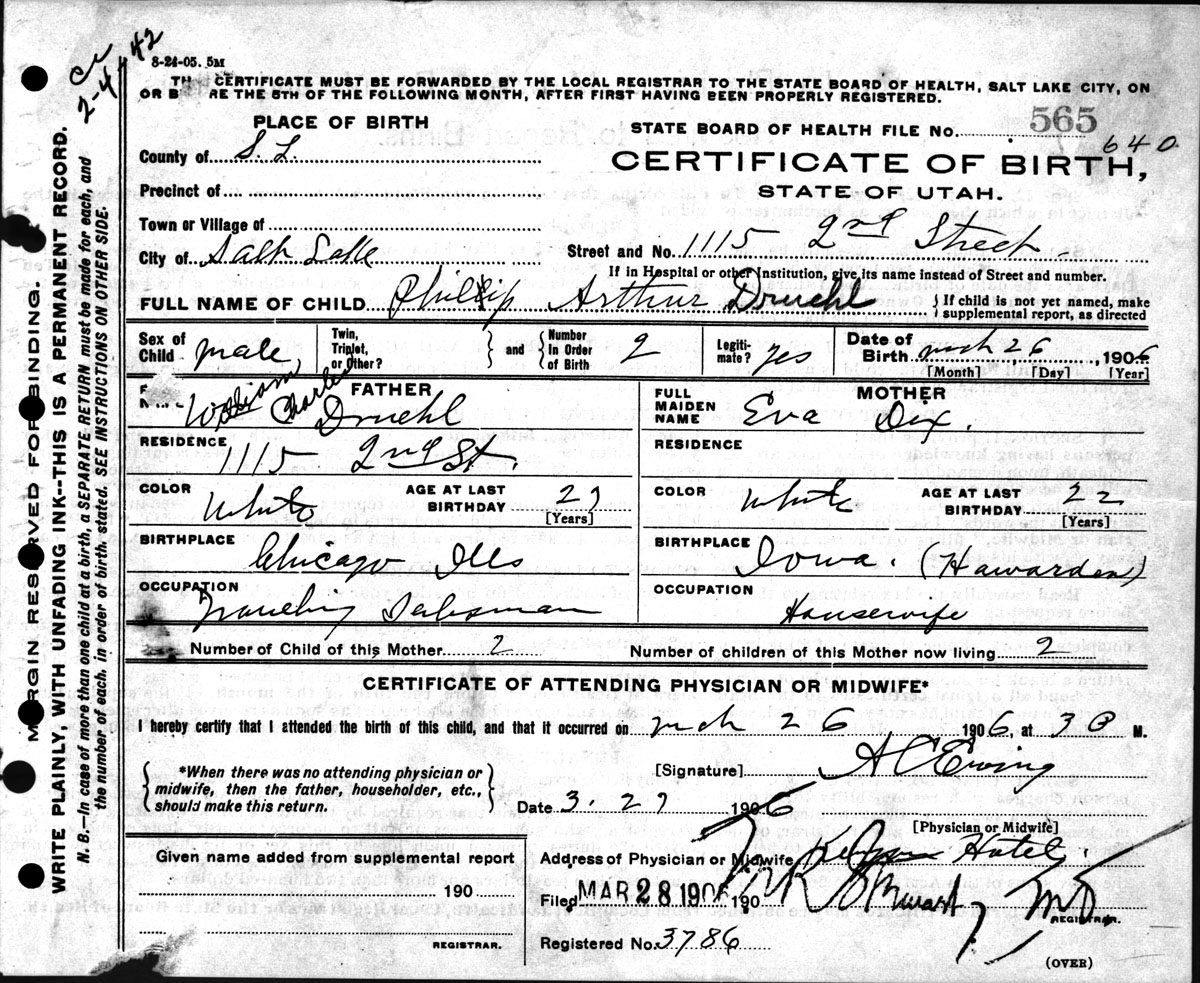 Cc
2-4-42
8-24-05. 5M
TH CERTIFICATE MUST BE FORWARDED BY THE LOCAL REGISTRAR TO THE STATE BOARD OF HEALTH, SALT LAKE CITY, ON
OR B RE THE 5TH OF THE FOLLOWING MONTH, AFTER FIRST HAVING BEEN PROPERLY REGISTERED.
PLACE OF BIRTH
STATE BOARD OF HEALTH FILE No. 565
640
County of S. L.
CERTIFICATE OF BIRTH,
Precinct of
STATE OF UTAH.
Town or Village of
City of Salt Lake
Street and No. 1115 2nd Street
If in Hospital or other Institution, give its name instead of Street and number.
FULL NAME OF CHILD Phillip Arthur Druehl
} If child is not yet named, make
supplemental report, as directed
Sex of Child male
Twin, Triplet, or Other? } and { Number In Order of Birth 2
Legitimate? yes
Date of Birth mch 26, 1906
[Month] [Day] [Year]
FATHER
William Charles Druehl
FULL MAIDEN NAME
MOTHER
Eva Dix
RESIDENCE 1115 2nd St.
RESIDENCE
COLOR White
AGE AT LAST BIRTHDAY 27
[Years]
COLOR White
AGE AT LAST BIRTHDAY 22
[Years]
BIRTHPLACE Chicago Ills
BIRTHPLACE Iowa. (Hawarden)
OCCUPATION Traveling Salesman
OCCUPATION Housewife
Number of Child of this Mother 2
Number of children of this Mother now living 2
CERTIFICATE OF ATTENDING PHYSICIAN OR MIDWIFE*
I hereby certify that I attended the birth of this child, and that it occurred on mch 26 1906, at 3 M.
{ *When there was no attending physician or
midwife, then the father, householder, etc.,
should make this return. }
[Signature] A C Ewing
Date 3. 27 1906
[Physician or Midwife]
Given name added from supplemental report
Address of Physician or Midwife Hotel.
190
Filed MAR 28 1906 190
M.D.
REGISTRAR.
REGISTRAR.
Registered No. 3786
(OVER)
MARGIN RESERVED FOR BINDING.
WRITE PLAINLY, WITH UNFADING INK--THIS IS A PERMANENT RECORD.
N. B.--In case of more than one child at a birth, a SEPARATE RETURN must be made for each, and
the number of each, in order of birth, stated. SEE INSTRUCTIONS ON OTHER SIDE.